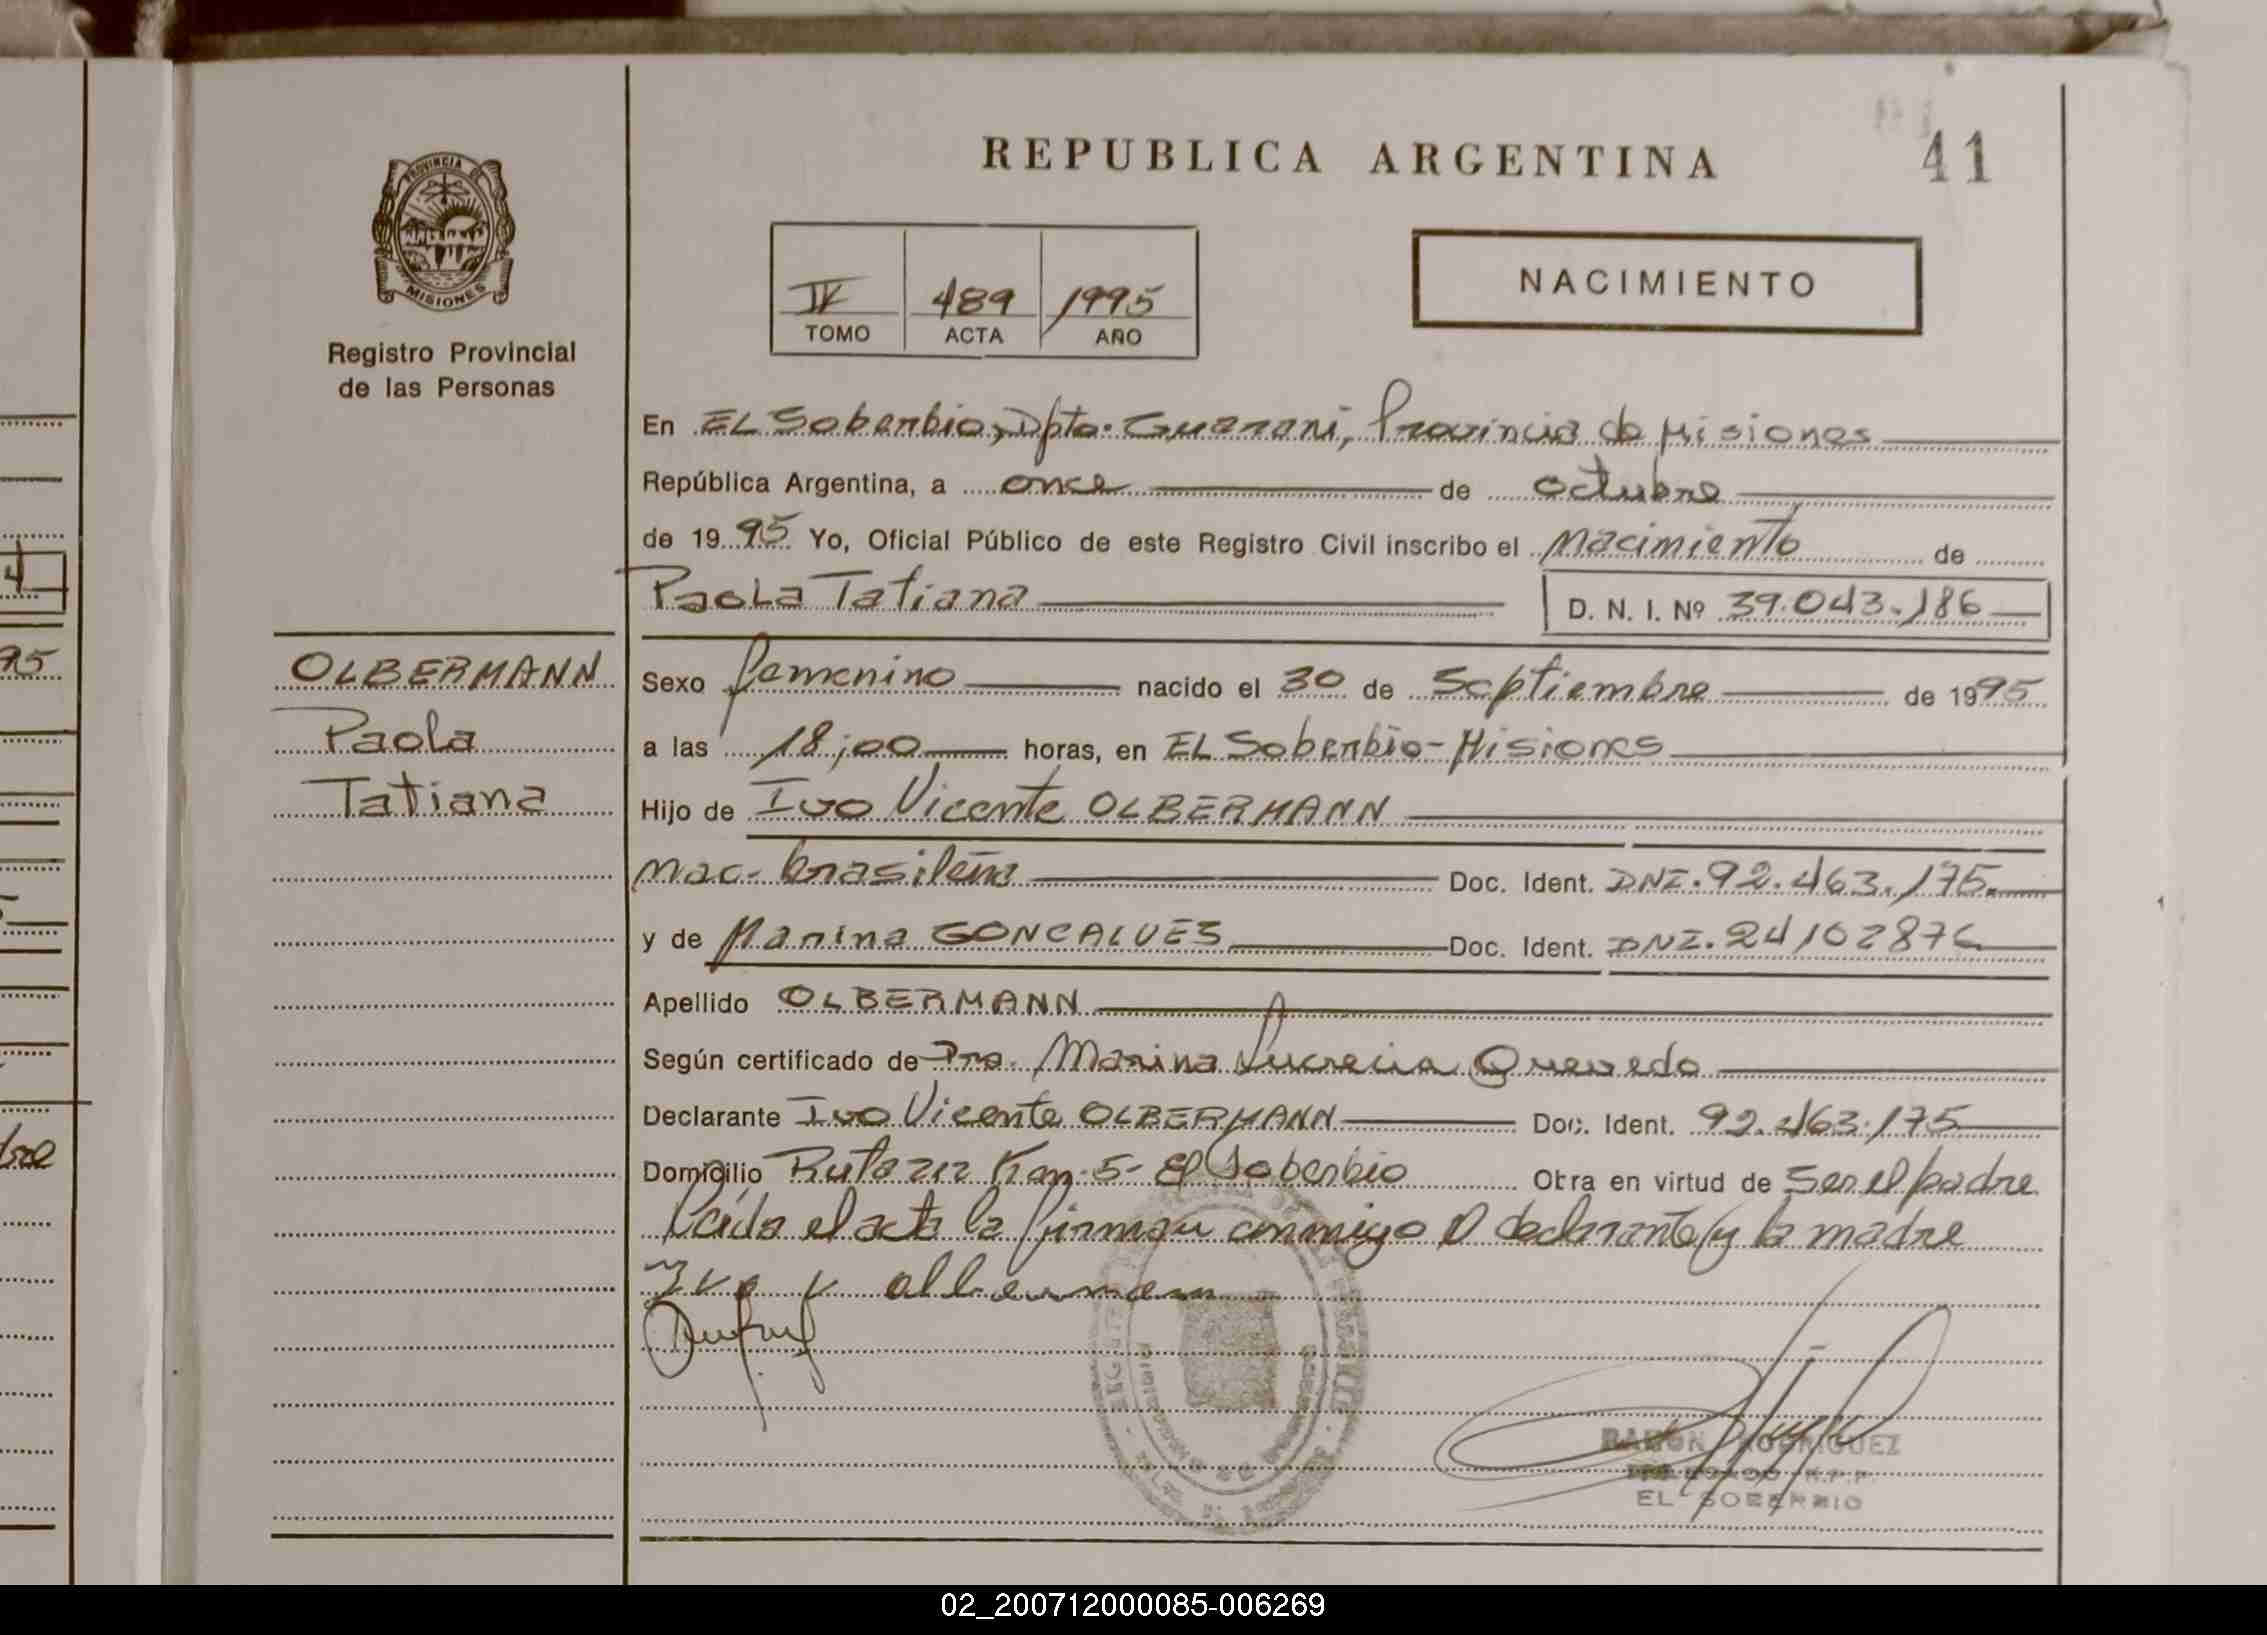 PROVINCIA DE
MISIONES
Registro Provincial
de las Personas
OLBERMANN
Paola
Tatiana
REPUBLICA ARGENTINA
41
IV 489 1995
TOMO ACTA AÑO
NACIMIENTO
En EL Soberbio, Dpto. Guarani, Provincia de Misiones
República Argentina, a once de octubre
de 1995 Yo, Oficial Público de este Registro Civil inscribo el Nacimiento de
Paola Tatiana D. N. I. Nº 39.043.186
Sexo femenino nacido el 30 de Septiembre de 1995
a las 18,00 horas, en EL Soberbio-Misiones
Hijo de Ivo Vicente OLBERMANN
nac. brasileña Doc. Ident. DNI.92.463.175.
y de Marina GONCALVES Doc. Ident. DNI.24102876
Apellido OLBERMANN
Según certificado de Dra. Marina Lucrecia Quevedo
Declarante Ivo Vicente OLBERMANN Doc. Ident. 92.463.175
Domicilio Ruta 212 Km-5- El Soberbio Obra en virtud de Ser el padre
Leída el acta la firman conmigo el declarante y la madre
Ivo V olbermann
RAMON RODRIGUEZ
EL SOBERBIO
95
dre
02_200712000085-006269